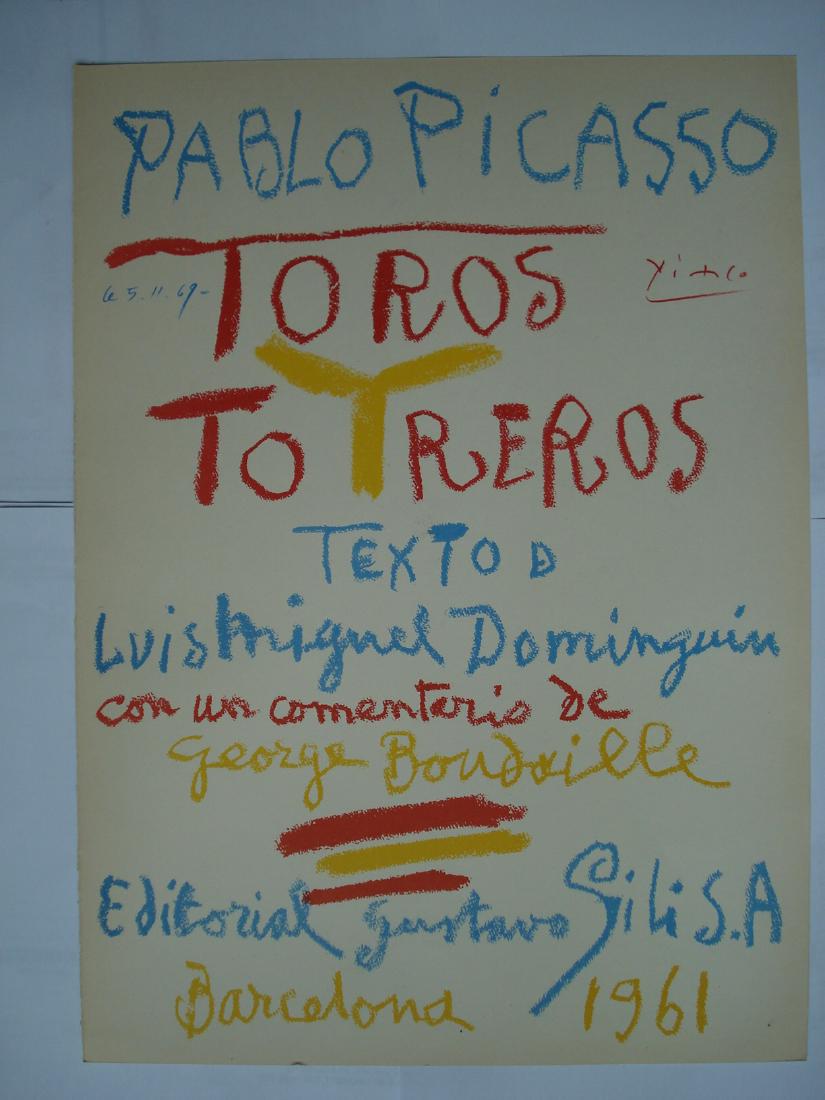 PABLO PiCASSO
TOROS
le 5.11.69-
Y
TOREROS
TEXTO D
Luis Miguel Dominguin
con un comentario de
George Boudaille
Editorial Gustavo Gili S.A
Barcelona 1961